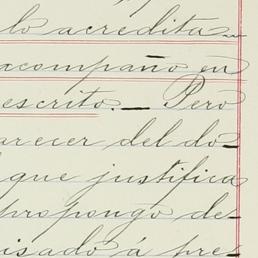 lo acredita
acompaño en
escrito. — Pero
arecer del do-
que justifica
propongo de-
isado á pre-